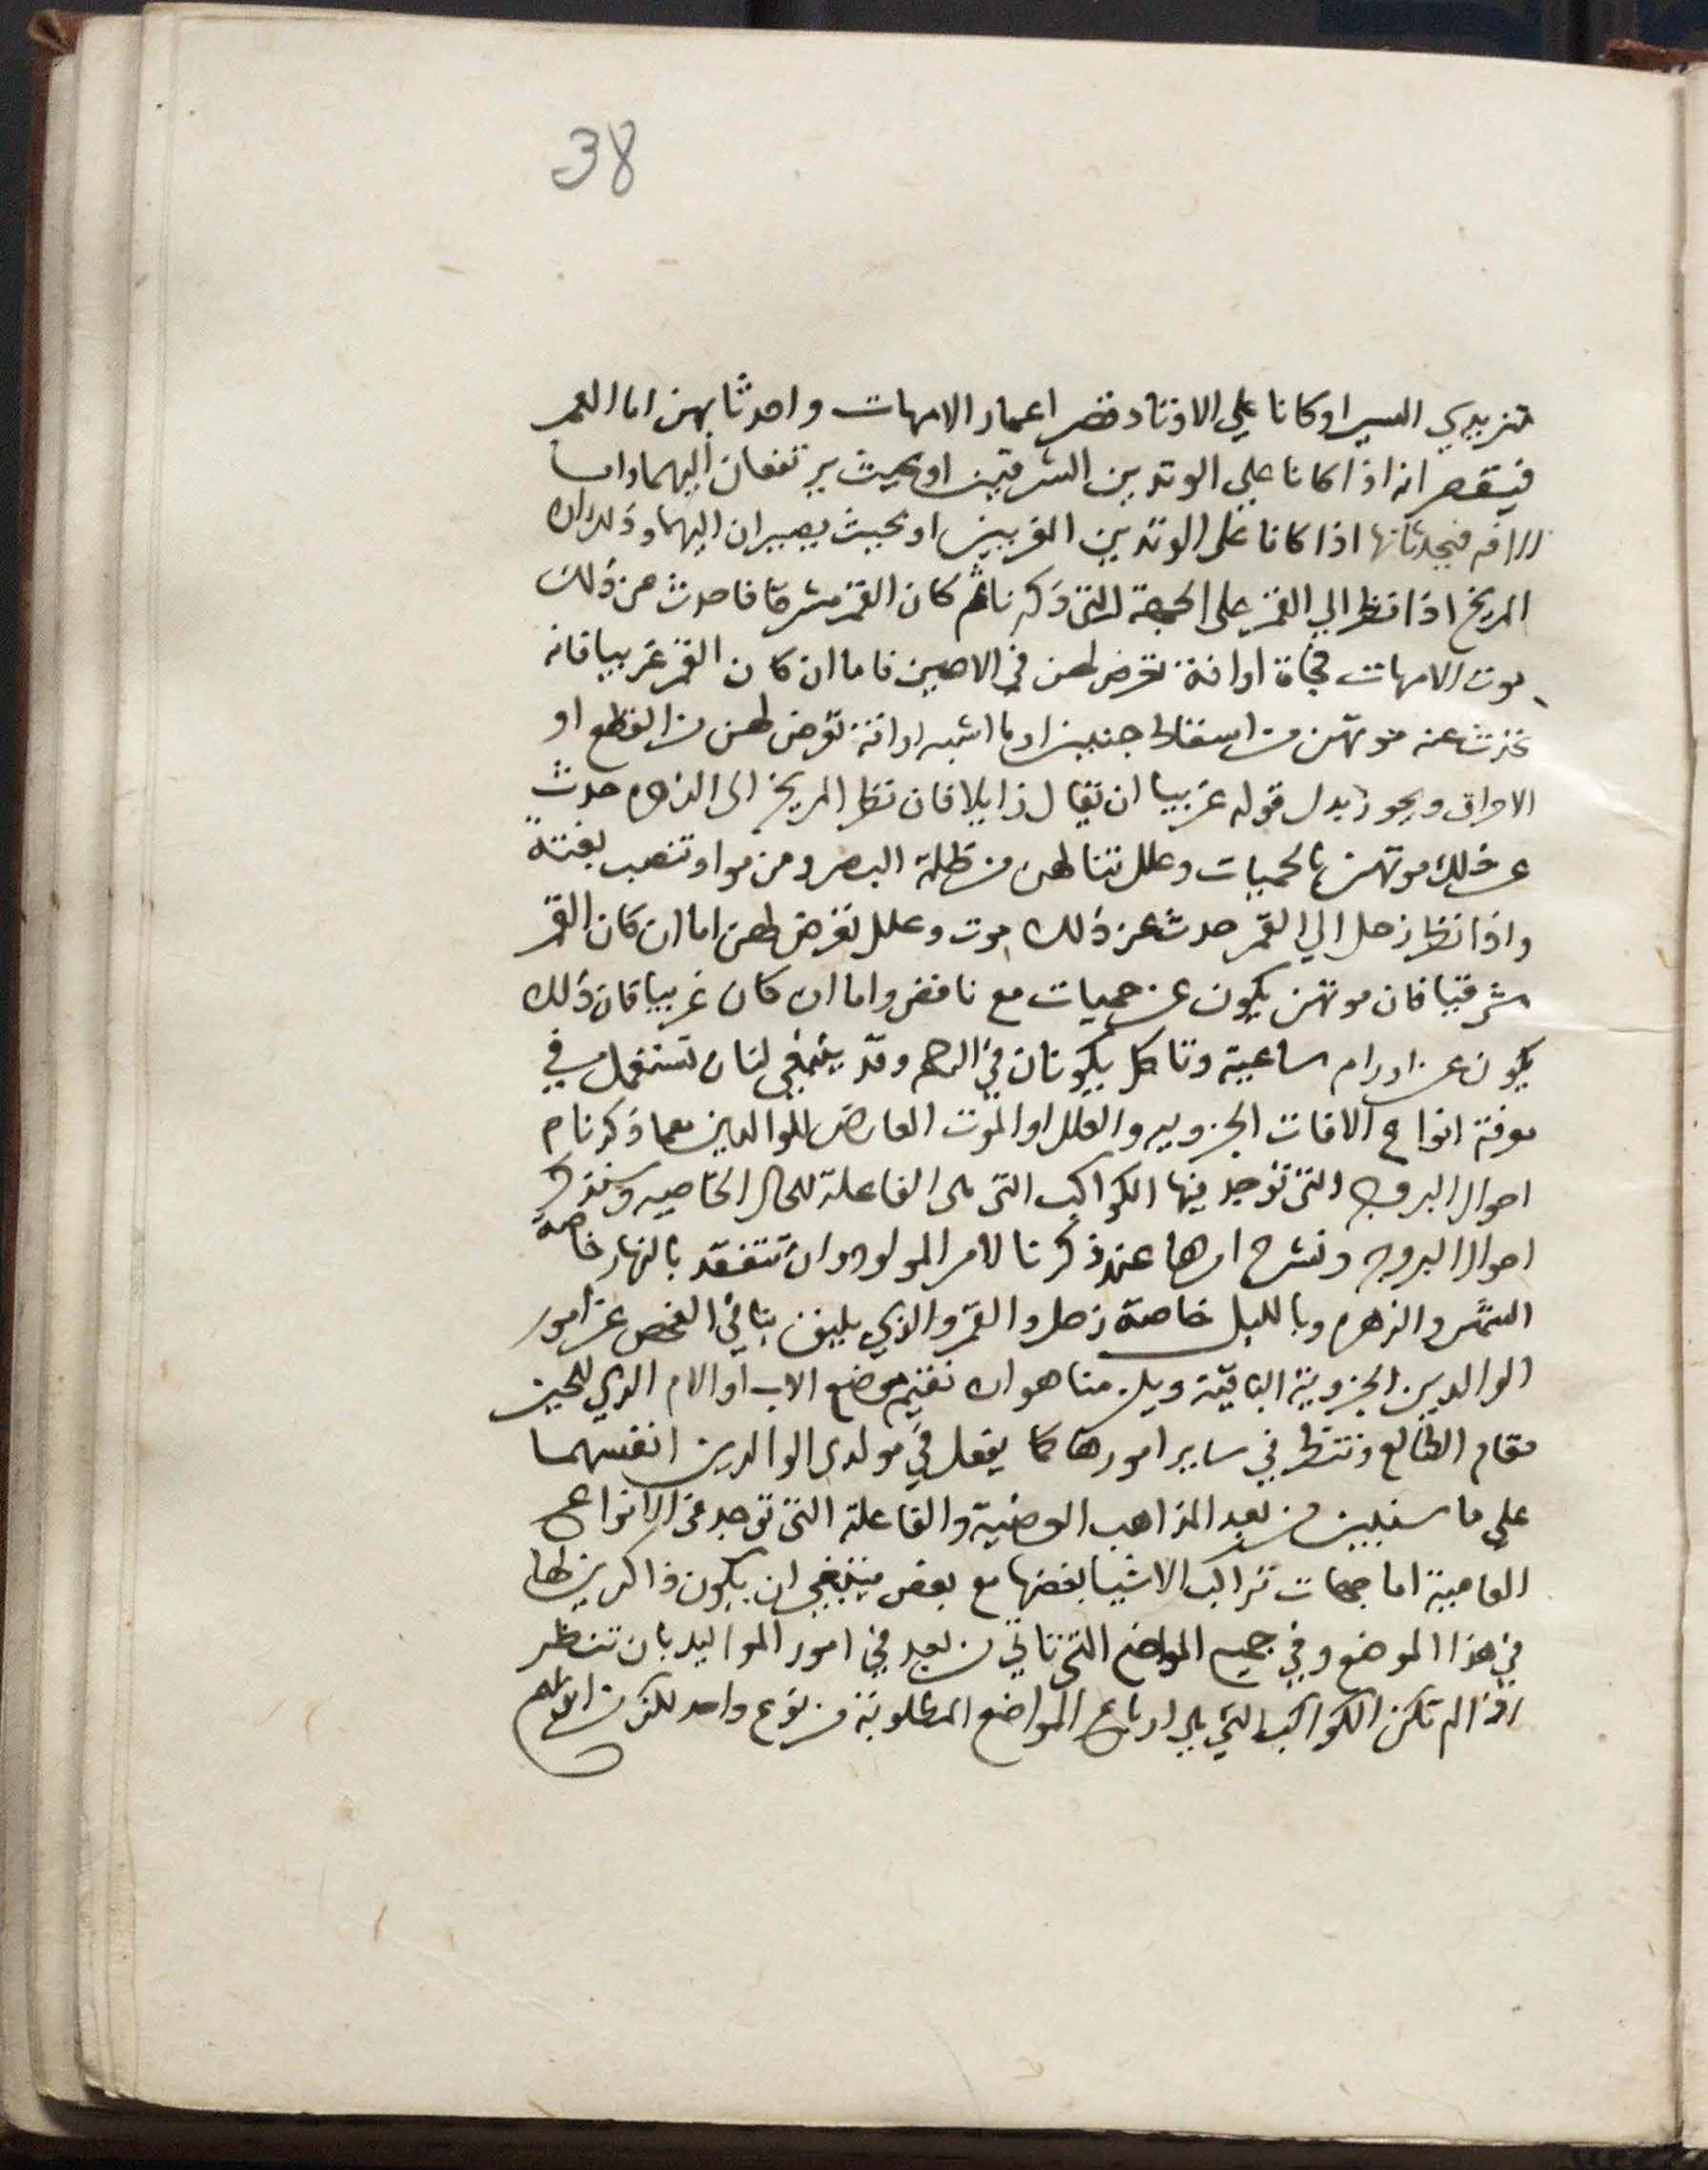 38
تزيدي السير او كانا علي الاوتاد قصر اعمار الامهات واحدثا بهن اما العمر
فيقصر انه اذا كانا علي الوتدين الشرقيين او بحيث يرتفعان اليهما واما
الافه فيحدثانها اذا كانا على الوتدين الغربيين او بحيث يصيران اليهما وذلك ان
المريخ اذا نظر الي القمر على الجهة التى ذكرنا ثم كان القمر مشرقا فاحدث من ذلك
موت الامهات فجاة او افة تعرض لهن في الاعين فاما ان كان القمر غربيا فانه
يحدث عنه موتهن من اسقاط جنين او ما اشبه او افة تعرض لهن من القطع او
الاحراق ويجوز بدل قوله غربيا ان يقال زايلا فان نظر المريخ الى الزهره حدث
عن ذلك موتهن بالحميات وعلل تنالهن من ظلمة البصر ومن مواد تنصب بغتة
واذا نظر زحل الي القمر حدث عن ذلك موت وعلل تعرض لهن اما ان كان القمر
شرقيا فان موتهن يكون عن حميات مع نافض واما ان كان غربيا فان ذلك
يكون عن اورام ساعية وتاكل يكونان في الرحم وقد ينبغي لنا ان نستعمل في
معرفة انواع الافات الجزويه والعلل او الموت العارض للوالدين مع ما ذكرنا من
احوال البروج التى توجد فيها الكواكب التى هى الفاعلة للحال الخاصيه وسنذكر
احوال البروج ونشرح امرها عند ذكرنا لامر المولود وان نتفقد بالنهار خاصة
الشمس والزهره وبالليل خاصة زحل والقمر والذي يليق بنا في الفحص عن امور
الوالدين الجزوية الباقية ويلزمنا هو ان نقيم موضع الاب او الام الذي للحين
مقام الطالع وننظر في ساير امورها كما يفعل في مولدى الوالدين انفسهما
علي ما سنبين من بعد المذاهب الوضية والفاعلة التى توجد من الانواع
العامية اما جهات تراكب الاشيا بعضها مع بعض فينبغي ان يكون ذاكرين لها
في هذا الموضع وفي جميع المواضع التى تاتي من بعد في امور المواليد بان ننظر
اذا لم تكن الكواكب التي تلي ارباع المواضع المطلوبة من نوع واحد لكن من انواع